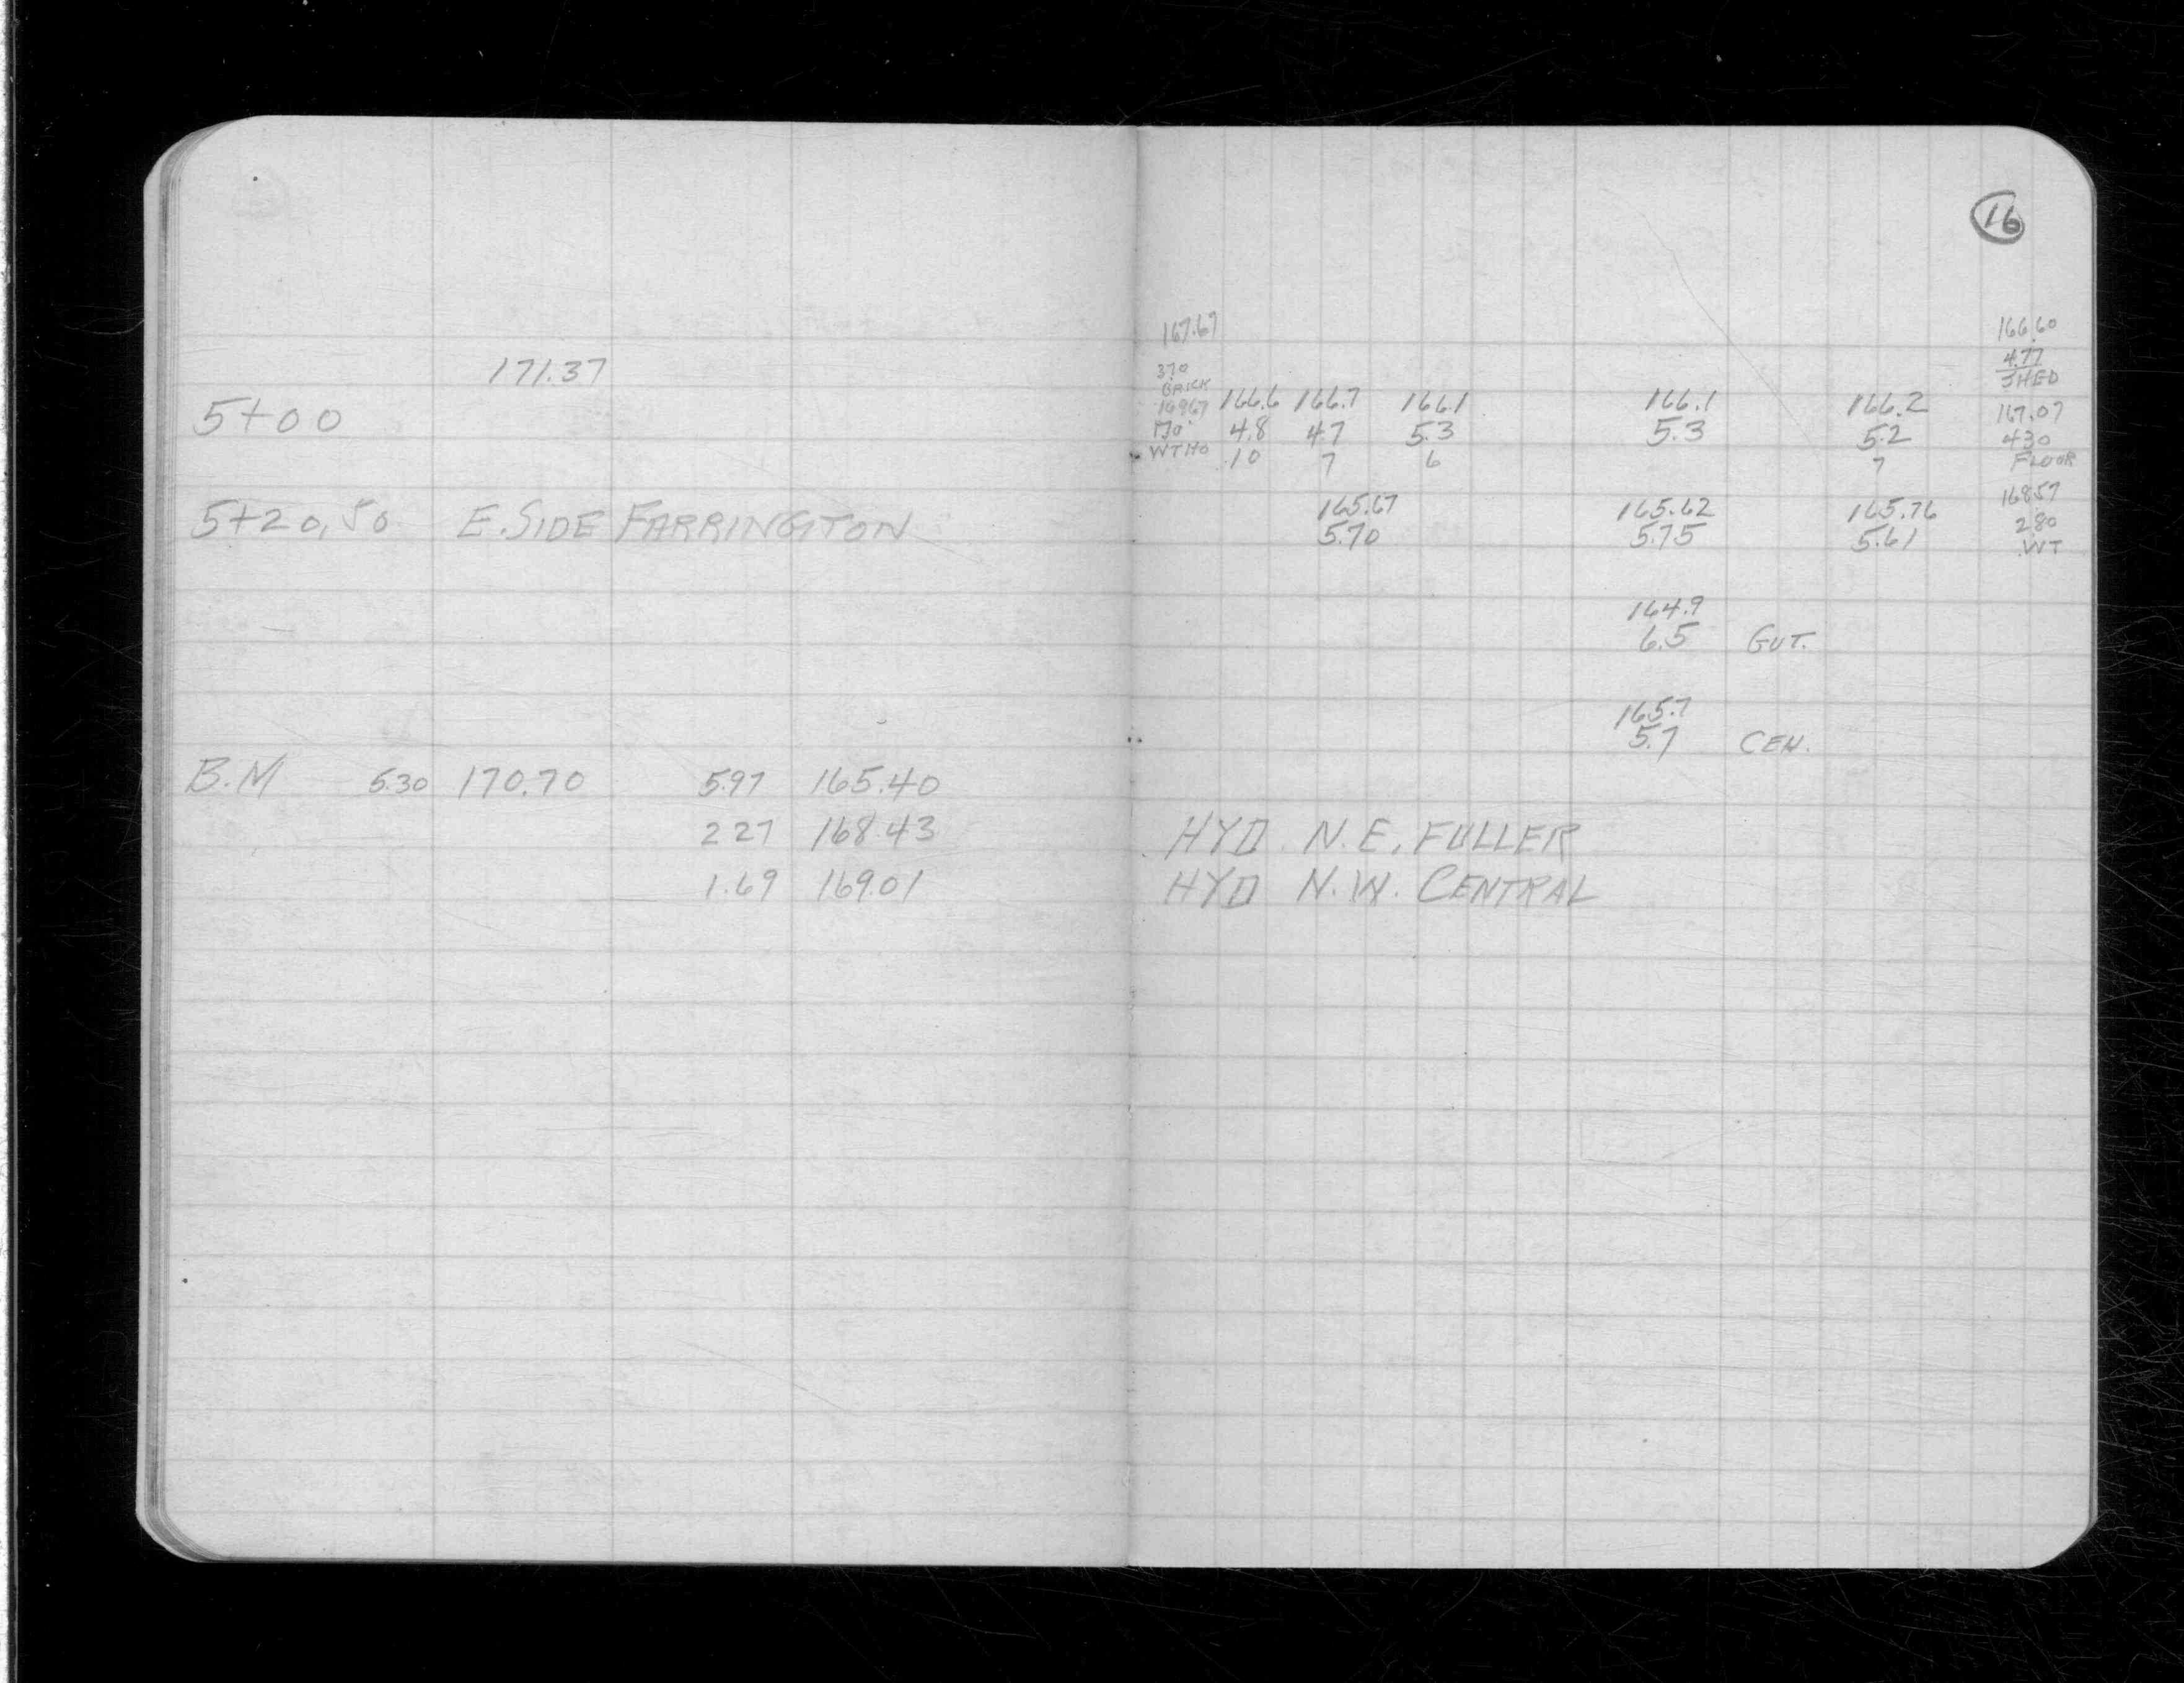 16
171.37
5+00
5+20.50 E. SIDE FARRINGTON
B.M 5.30 170.70 5.97 165.40
2 27 168.43
1.69 169.01
167.67
370
BRICK
16967
170
WTHO
166.6 166.7 166.1 166.1 166.2
4.8 47 5.3 5.3 5.2
10 7 6 7
166.60
4.77
SHED
167.07
430
FLOOR
165.67 165.62 165.76
5.70 5.75 5.61
16857
280
WT
164.9
6.5 GUT.
165.7
5.7 CEN.
HYD. N.E. FULLER
HYD N.W. CENTRAL